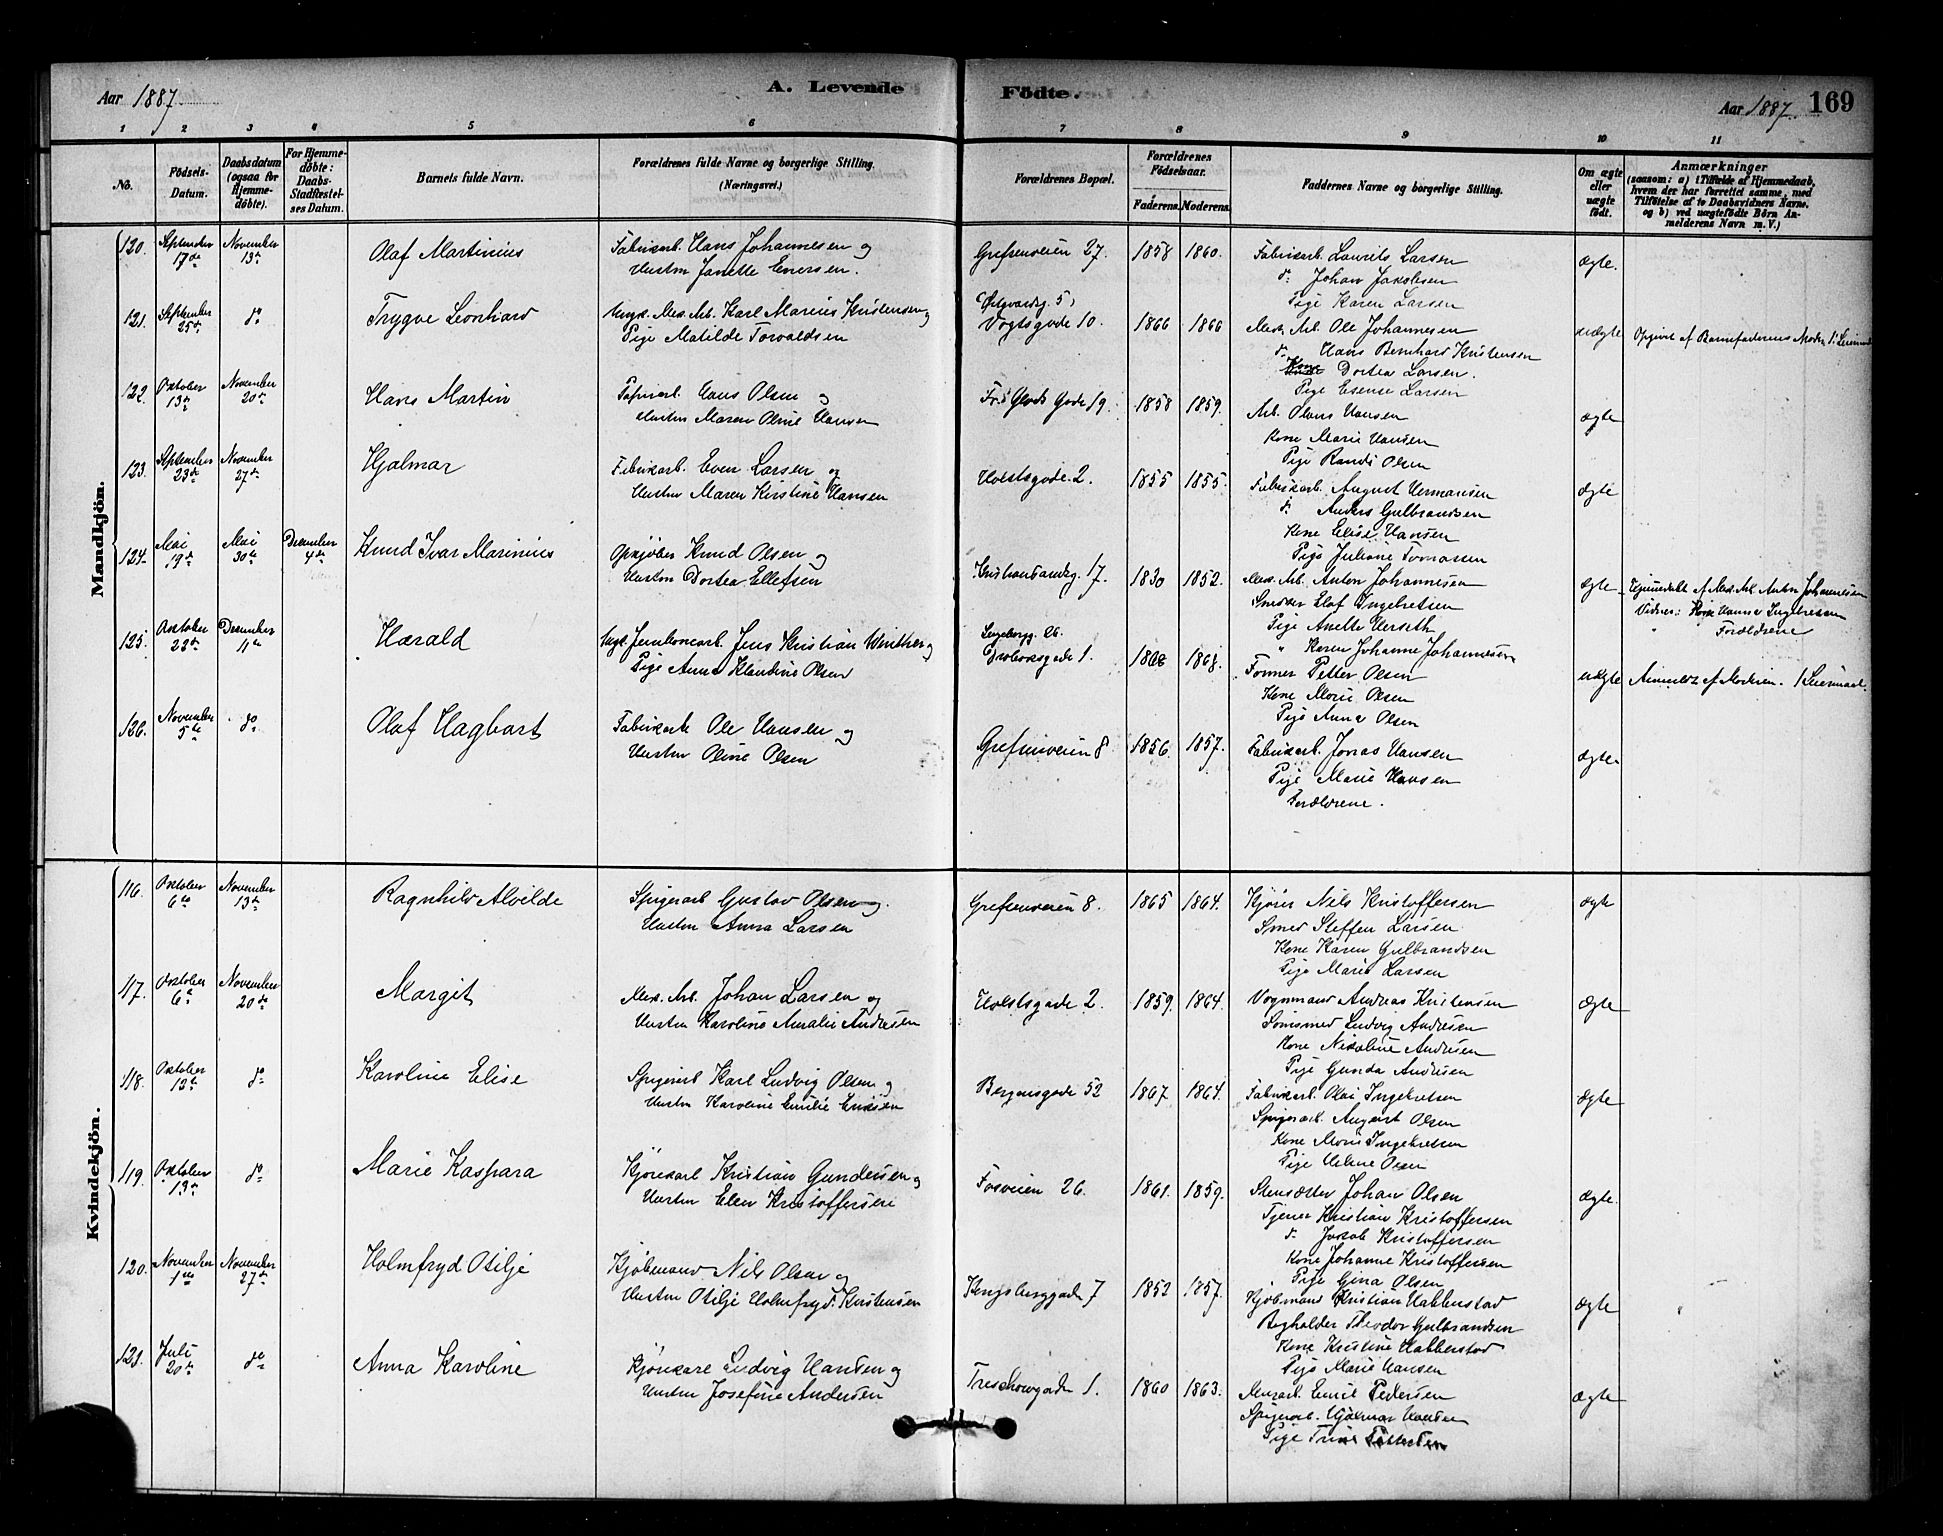 Aar 1887
A. Levende
Födte.
Aar 1887. 169
1 2 3 4 5 6 7 8 9 10 11
No.
Födsels-
Datum.
Daabsdatum
(ogsaa for
Hjemme-
döbte).
For Hjemme-
döbte:
Daabs-
Stadfæstel-
ses Datum.
Barnets fulde Navn.
Forældrenes fulde Navne og borgerlige Stilling.
(Næringsvei.)
Forældrenes Bopæl.
Forældrenes
Födselsaar.
Faderens. Moderens.
Faddernes Navne og borgerlige Stilling.
Om ægte
eller
uægte
født.
Anmærkninger
(saasom: a) i Tilfælde af Hjemmedaab,
hvem der har forrettet samme, med
Tilföielse af to Daabsvidners Navne.
og b) ved uægtefödte Börn An-
melderens Navn m. V.)
Mandkjön.
120. September 17de November 13de Olaf Martinius
Fabrikarb. Hans Johannesen og
Hustru Janette Enersen.
Grefsenveien 27. 1858 1860.
Fabrikarb. Laurits Larsen
do Johan Jakobsen
Pige Karen Larsen
ægte.
121. September 25de do Trygve Leonhard
Ungk. Mek. Arb. Karl Marius Kristensen og
Pige Matilde Torvaldsen
Vogtsgade 10. 1866 1866
Mek. Arb. Ole Johannesen
do Hans Bernhard Kristensen
Kone Dortea Larsen.
Pige Larsen
uægte
Opgivet af Barnefaderens Moder
122. Oktober 13de November 20de Hans Martin
Hans Olsen og
Hustru Maren Oline Hansen
Gade 19. 1858 1859.
Arb. Olaus Hansen
Kone Marie Hansen
Pige Randi Olsen
ægte
123. September 23de November 27de Hjalmar
Fabrikarb. Even Larsen og
Hustru Maren Kirstine Hansen
Holstsgade 2. 1855 1855.
Fabrikarb. August Hermansen
do Anders Gulbrandsen
Kone Elise Hansen
Pige Juliane Tomassen
ægte
124. Mai 19de Mai 30te December 4de Knud Ivar Marinius
Opkjøber Knud Olsen og
Hustru Dortea Ellefsen
Kristiansandsg. 17. 1830 1852.
Mek. Arb. Anton Johannesen
Snedker Elof Ingebretsen
Pige Anette
" Karen Johanne Johannesen
ægte
Hjemmedøbt af Mek. Arb. Anton Johannesen
Vidner: Hanna Ingebretsen
" Forældrene
125. Oktober 23de December 11te Harald
Ungk. Jernbanearb. Jens Kristian Winther og
Pige Anna Klaudine Olsen
Drøbaksgade 1. 1868 1868.
Former Petter Olsen
Kone Marie Olsen
Pige Anna Olsen
uægte
Anmeldt af Moderen. 1 Leiermaal.
126. November 5te do Olaf Hagbart
Fabrikarb Ole Hansen og
Hustru Oline Olsen
Grefsenveien 8 1856 1857.
Fabrikarb. Jonas Hansen
Pige Marie Hansen
Forældrene.
ægte.
Kvindekjön.
116. Oktober 6te November 13de Ragnhild Alvilde
Spigerarb Gustav Olsen og.
Hustru Anna Larsen
Grefsenveien 8. 1865 1864.
Kjører Nils Kristoffersen
Smed Steffen Larsen
Kone Karen Gulbrandsen
Pige Marie Larsen
ægte
117. Oktober 6te November 20de Margit
Mek. Arb. Johan Larsen og
Hustru Karoline Amalie Andresen
Holstsgade 2. 1859. 1864.
Vognmand Andreas Kristensen
Ludvig Andresen
Kone Nikoline Andresen
Pige Gunda Andresen
Ægte
118. Oktober 12te do Karoline Elise
Spigerarb Karl Ludvig Olsen og
Hustru Karoline Emilie Eriksen
Bergensgade 52 1867 1864.
Fabrikarb. Olai Ingebretsen
Spigerarb. August Olsen
Kone Marie Ingebretsen
Pige Helene Olsen
ægte
119. Oktober 13de do Marie Kaspara
Kjørekarl Kristian Gundersen og
Hustru Elen Kristoffersen
Fosveien 26. 1861. 1859.
Johan Olsen
Tjener Kristian Kristoffersen
do Jakob Kristoffersen
Kone Johanne Kristoffersen
Pige Gina Olsen
ægte.
120. November 1ste November 27de Holmfryd Otilje
Kjøbmand Nils Olsen og
Hustru Otilje Holmfryd Kristensen
Kongsberggaden 7 1852 1857.
Kjøbmand Kristian Habberstad
Theodor Gulbrandsen
Kone Kristine Habberstad
Pige Marie Hansen
ægte
121. Juli 20de do Anna Karoline
Kjørekarl Ludvig Hansen og
Hustru Josefine Andersen
Treschowgaden 1. 1860 1863.
Emil Pedersen
Spigerarb. Hjalmar Hansen
Pige Trine Pettersen
ægte